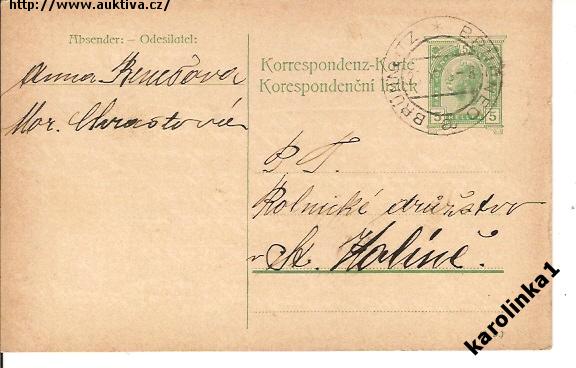 http://www.auktiva.cz/
Absender: – Odesílatel:
Anna Benešova
Mor. Chrastová
Korrespondenz-Karte
Korespondenční lístek
BRÜNNLITZ * BRNĚNEC
5 5
P. T.
Rolnické družstvo
v St. Kolíně.
karolinka1